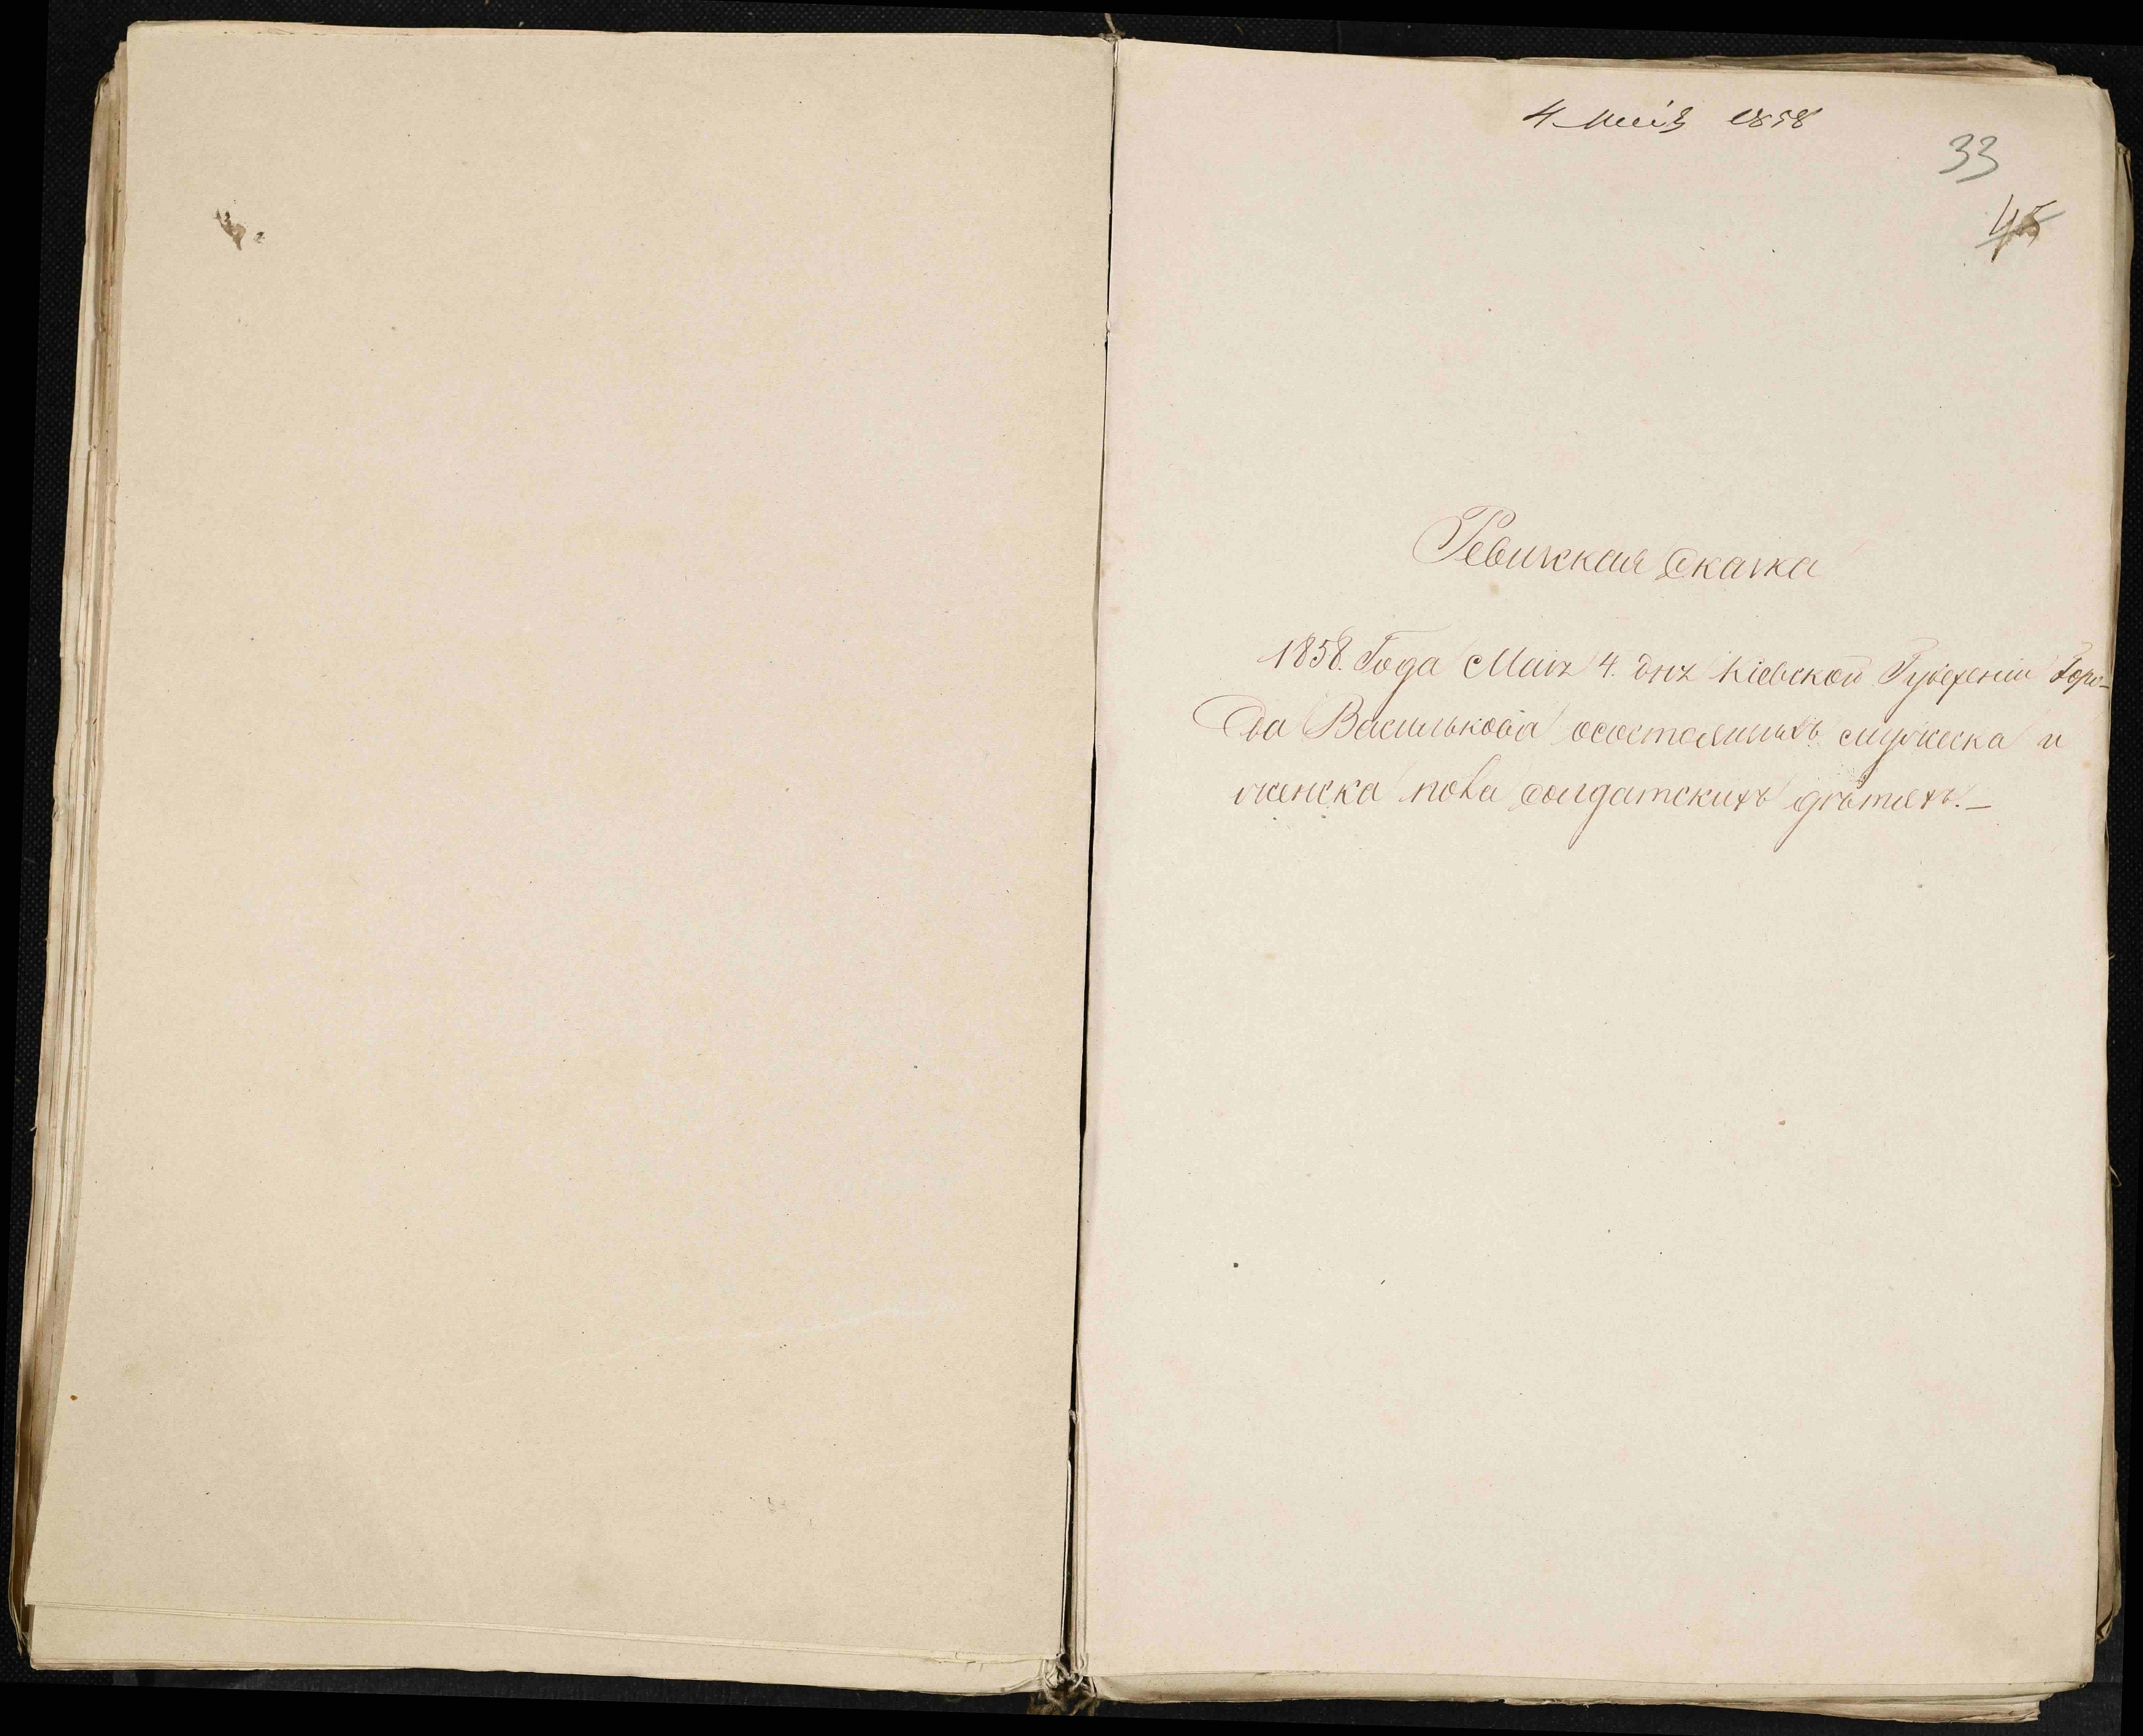 4 Маія 1858
33
45
Ревижкая Скаska
1858. Года Маія 4. дня Кіевской Губерніи Горо-
да Василькова осостоящихъ мужеска и
женска пола солдатскихъ дѣтяхъ.—